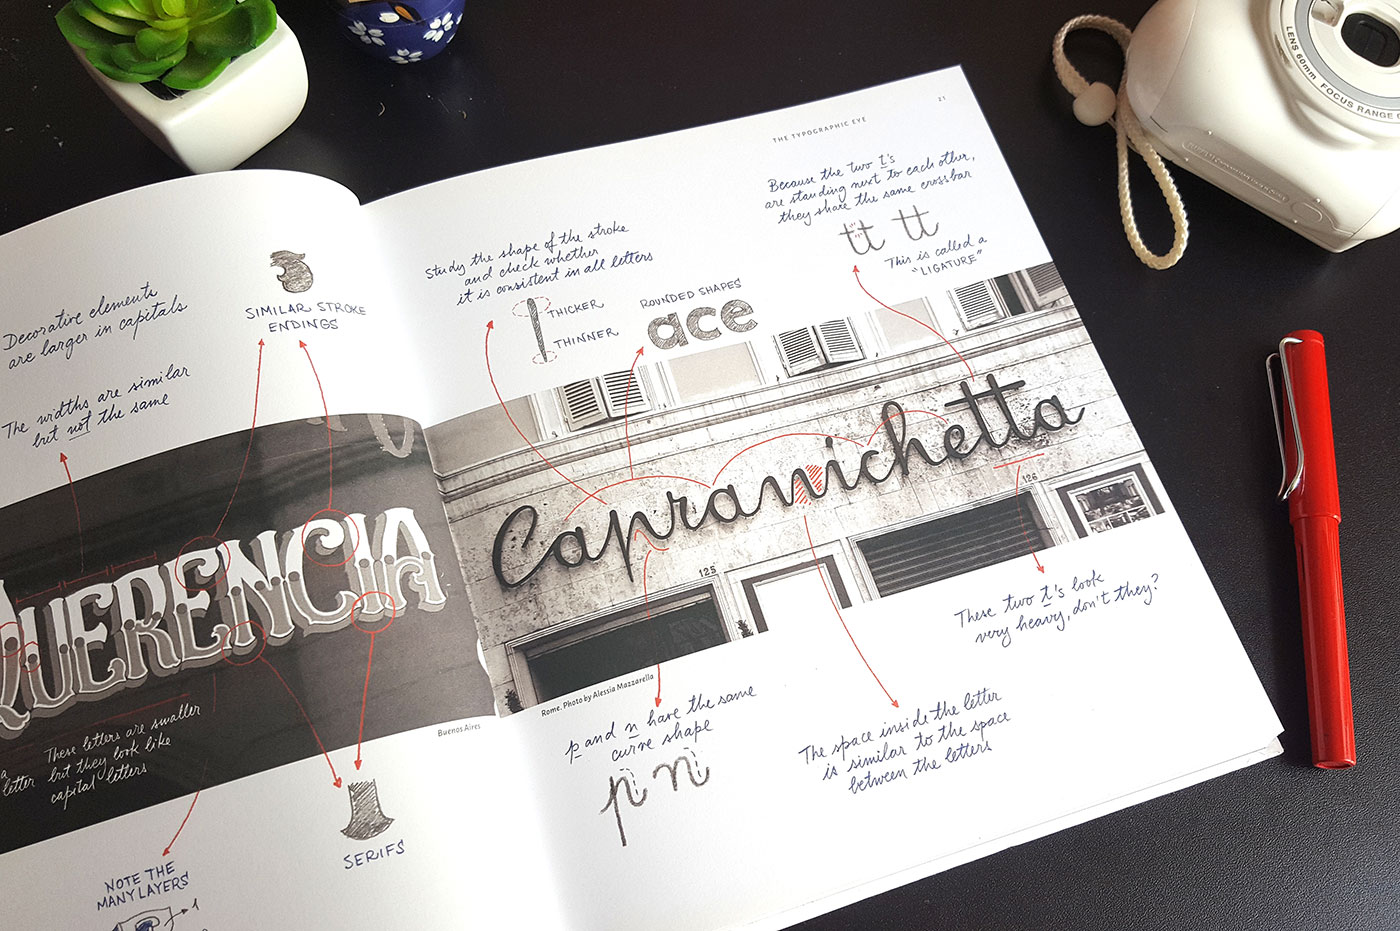 Decorative elements
are larger in capitals
The widths are similar
but not the same
SIMILAR STROKE
ENDINGS
QUERENCIA
These letters are smaller
but they look like
capital letters
a
letter
Buenos Aires
SERIFS
NOTE THE
MANY LAYERS
1
THE TYPOGRAPHIC EYE
21
Study the shape of the stroke
and check whether
it is consistent in all letters
THICKER
THINNER
ROUNDED SHAPES
ace
Because the two t's
are standing next to each other,
they share the same crossbar
tt tt
This is called a
"LIGATURE"
Capranichetta
125
126
Rome. Photo by Alessia Mazzarella
p and n have the same
curve shape
p n
These two t's look
very heavy, don't they?
The space inside the letter
is similar to the space
between the letters
LENS 60mm
FOCUS RANGE